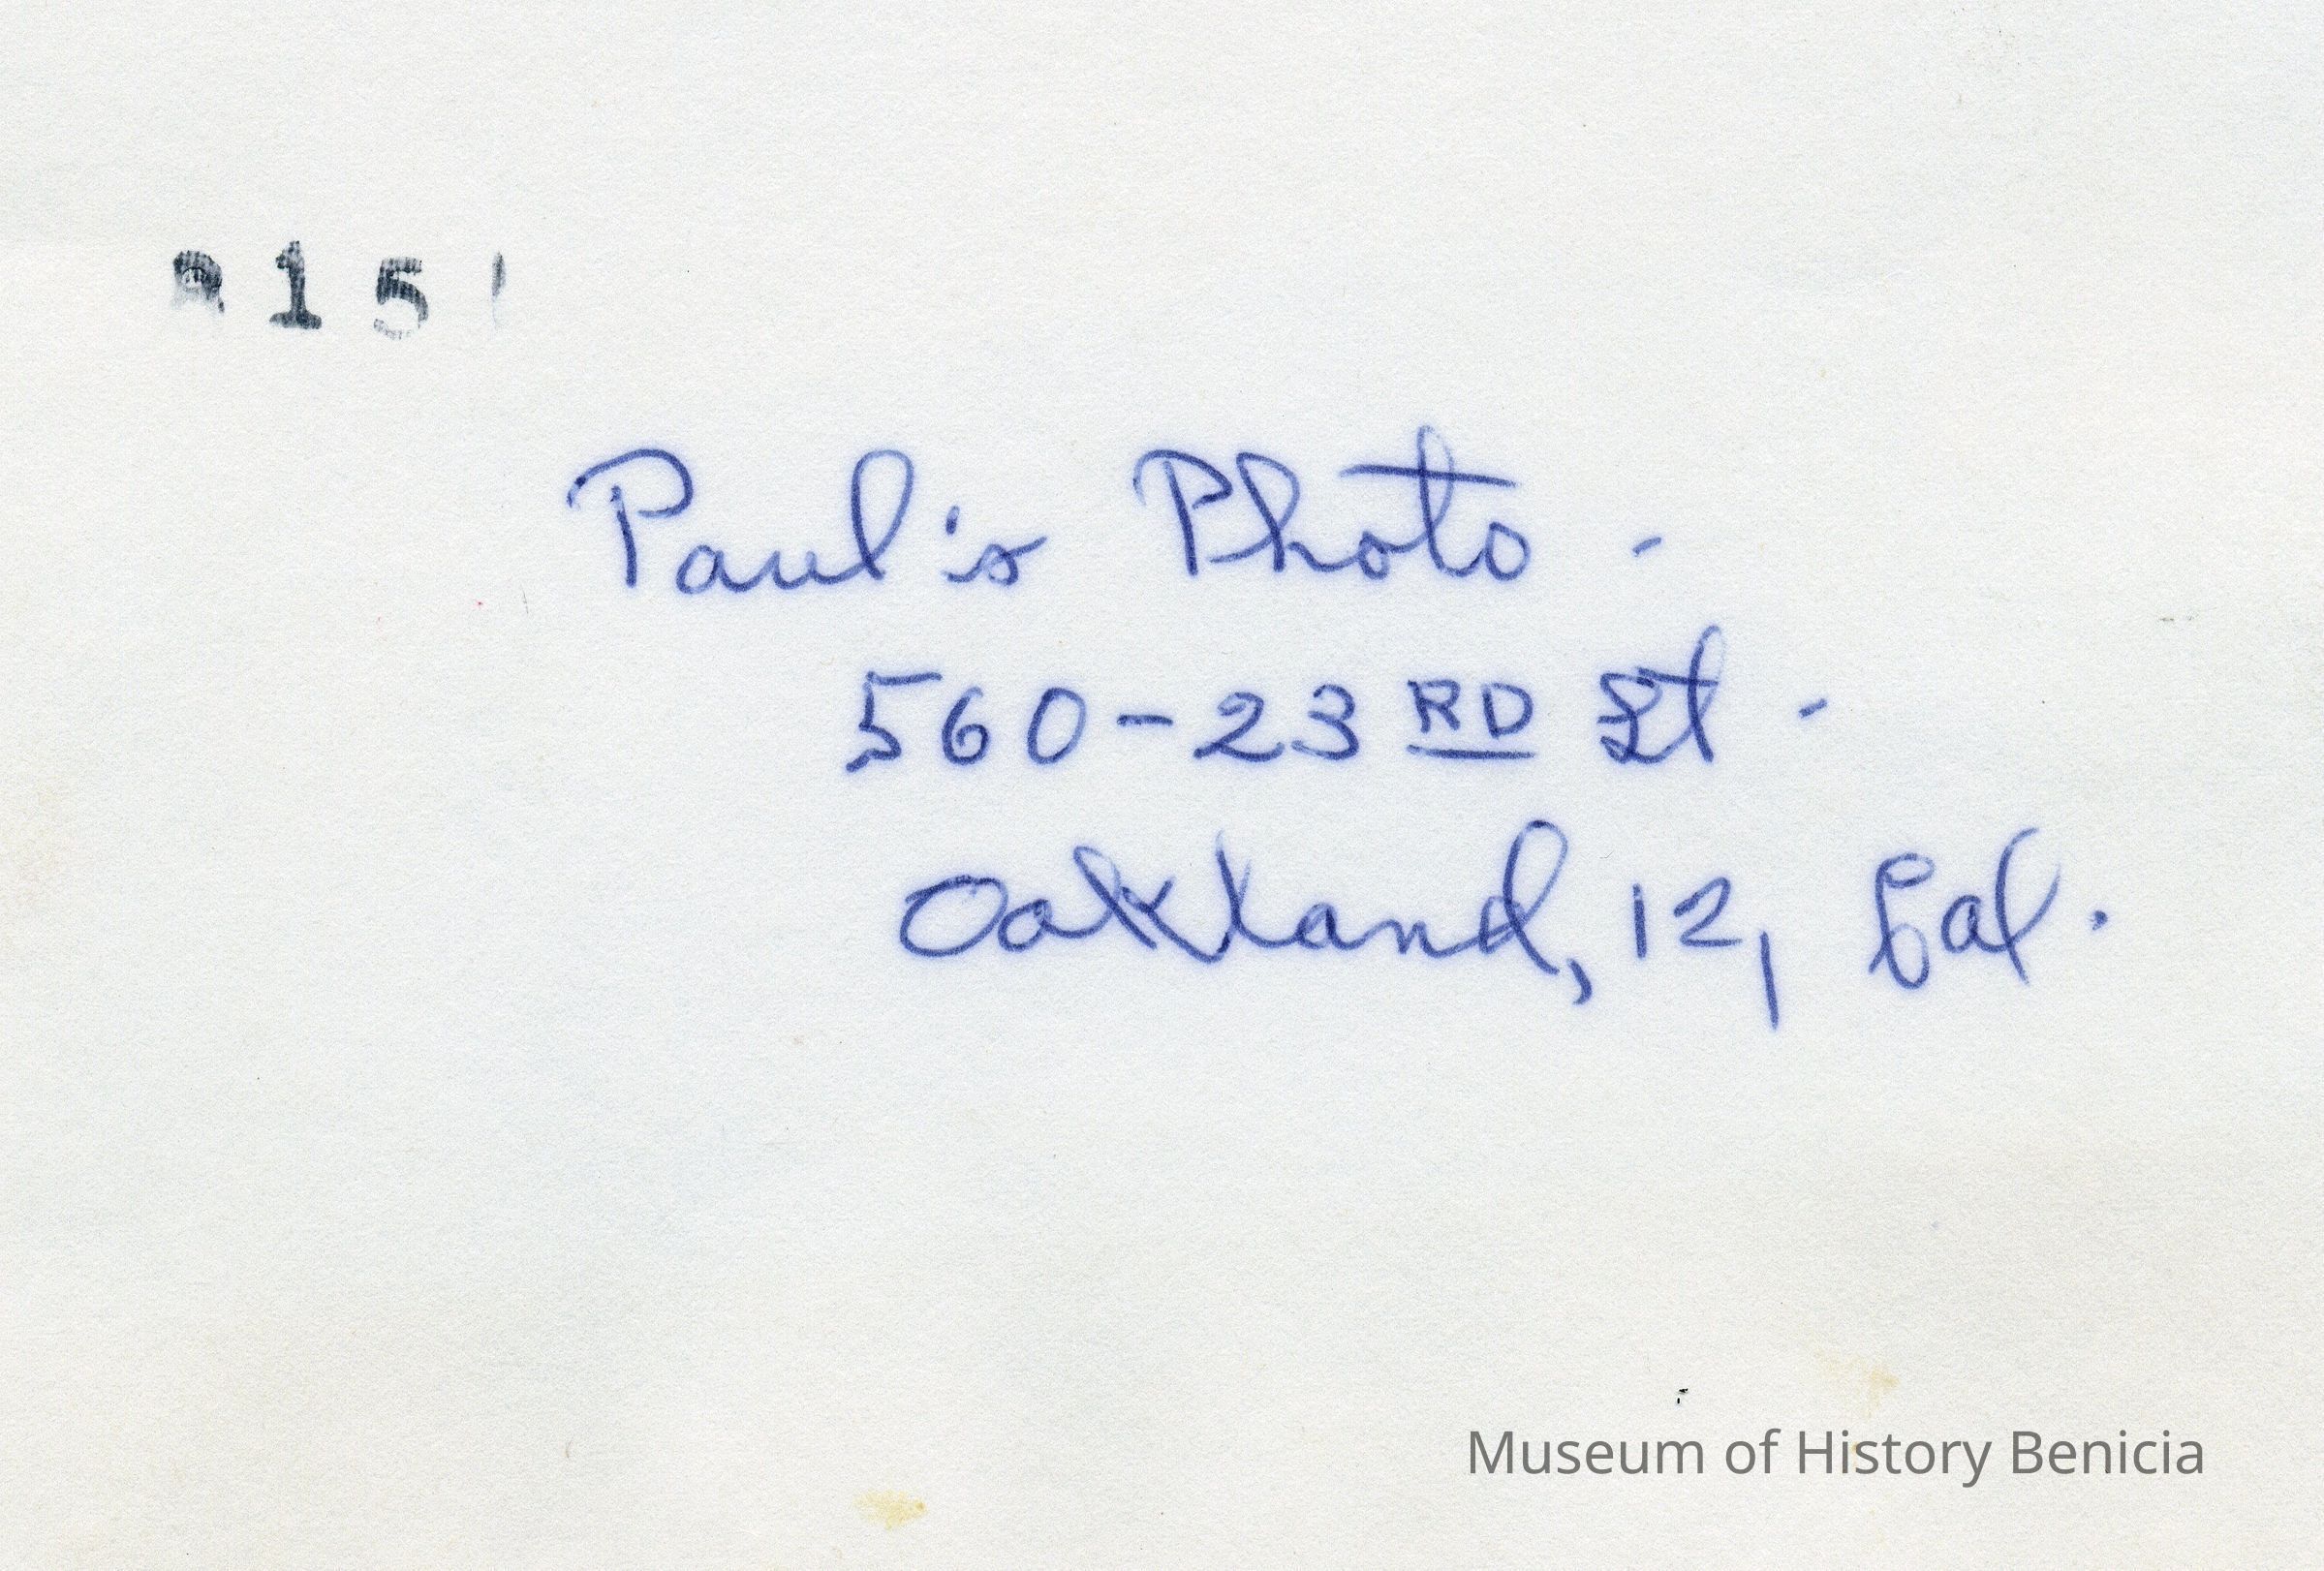 Paul's Photo -
560-23RD St -
Oakland, 12, Cal.
Museum of History Benicia